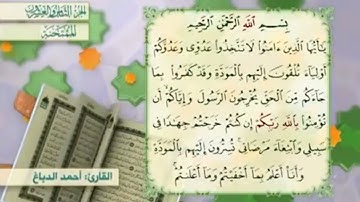 الجزء الثامن والعشرون
الممتحنة
بِسْمِ ٱللَّهِ ٱلرَّحْمَٰنِ ٱلرَّحِيمِ
يَٰٓأَيُّهَا ٱلَّذِينَ ءَامَنُوا۟ لَا تَتَّخِذُوا۟ عَدُوِّى وَعَدُوَّكُمْ
أَوْلِيَآءَ تُلْقُونَ إِلَيْهِم بِٱلْمَوَدَّةِ وَقَدْ كَفَرُوا۟ بِمَا
جَآءَكُم مِّنَ ٱلْحَقِّ يُخْرِجُونَ ٱلرَّسُولَ وَإِيَّاكُمْ أَن
تُؤْمِنُوا۟ بِٱللَّهِ رَبِّكُمْ إِن كُنتُمْ خَرَجْتُمْ جِهَٰدًا فِى
سَبِيلِى وَٱبْتِغَآءَ مَرْضَاتِى تُسِرُّونَ إِلَيْهِم بِٱلْمَوَدَّةِ
وَأَنَا۠ أَعْلَمُ بِمَآ أَخْفَيْتُمْ وَمَآ أَعْلَنتُمْ
القارئ: أحمد الدباغ